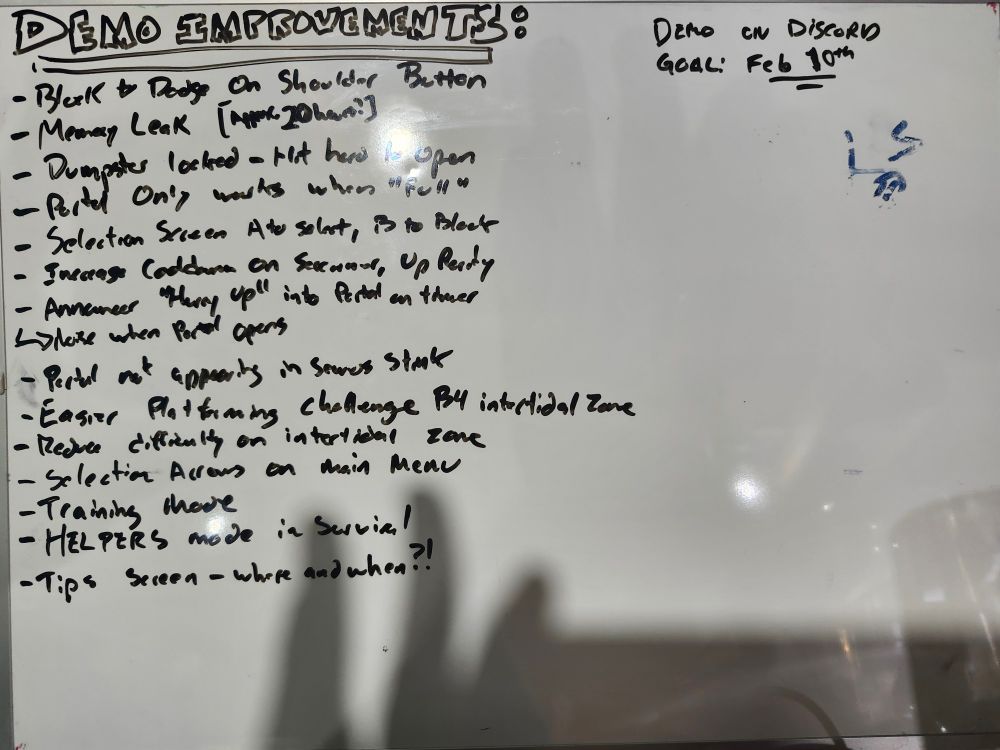 DEMO IMPROVEMENTS:
- Block & Dodge On Shoulder Button
- Memory Leak [Approx. 20 hours?]
- Dumpster locked - Hit hard to open
- Portal Only works when "Full"
- Selection Screen A to select, B to Back
- Increase Cooldown on Screamer, Up
- Announcer "Hurry Up" into Portal on timer
↳ Noise when Portal opens
- Portal not appearing in
- Easier Platforming Challenge B4 intertidal Zone
- Reduce difficulty on intertidal zone
- Selection Arrows on main Menu
- Training Mode
- HELPERS mode in Survival
- Tips Screen - where and when?!
DEMO ON DISCORD
GOAL: Feb 10th